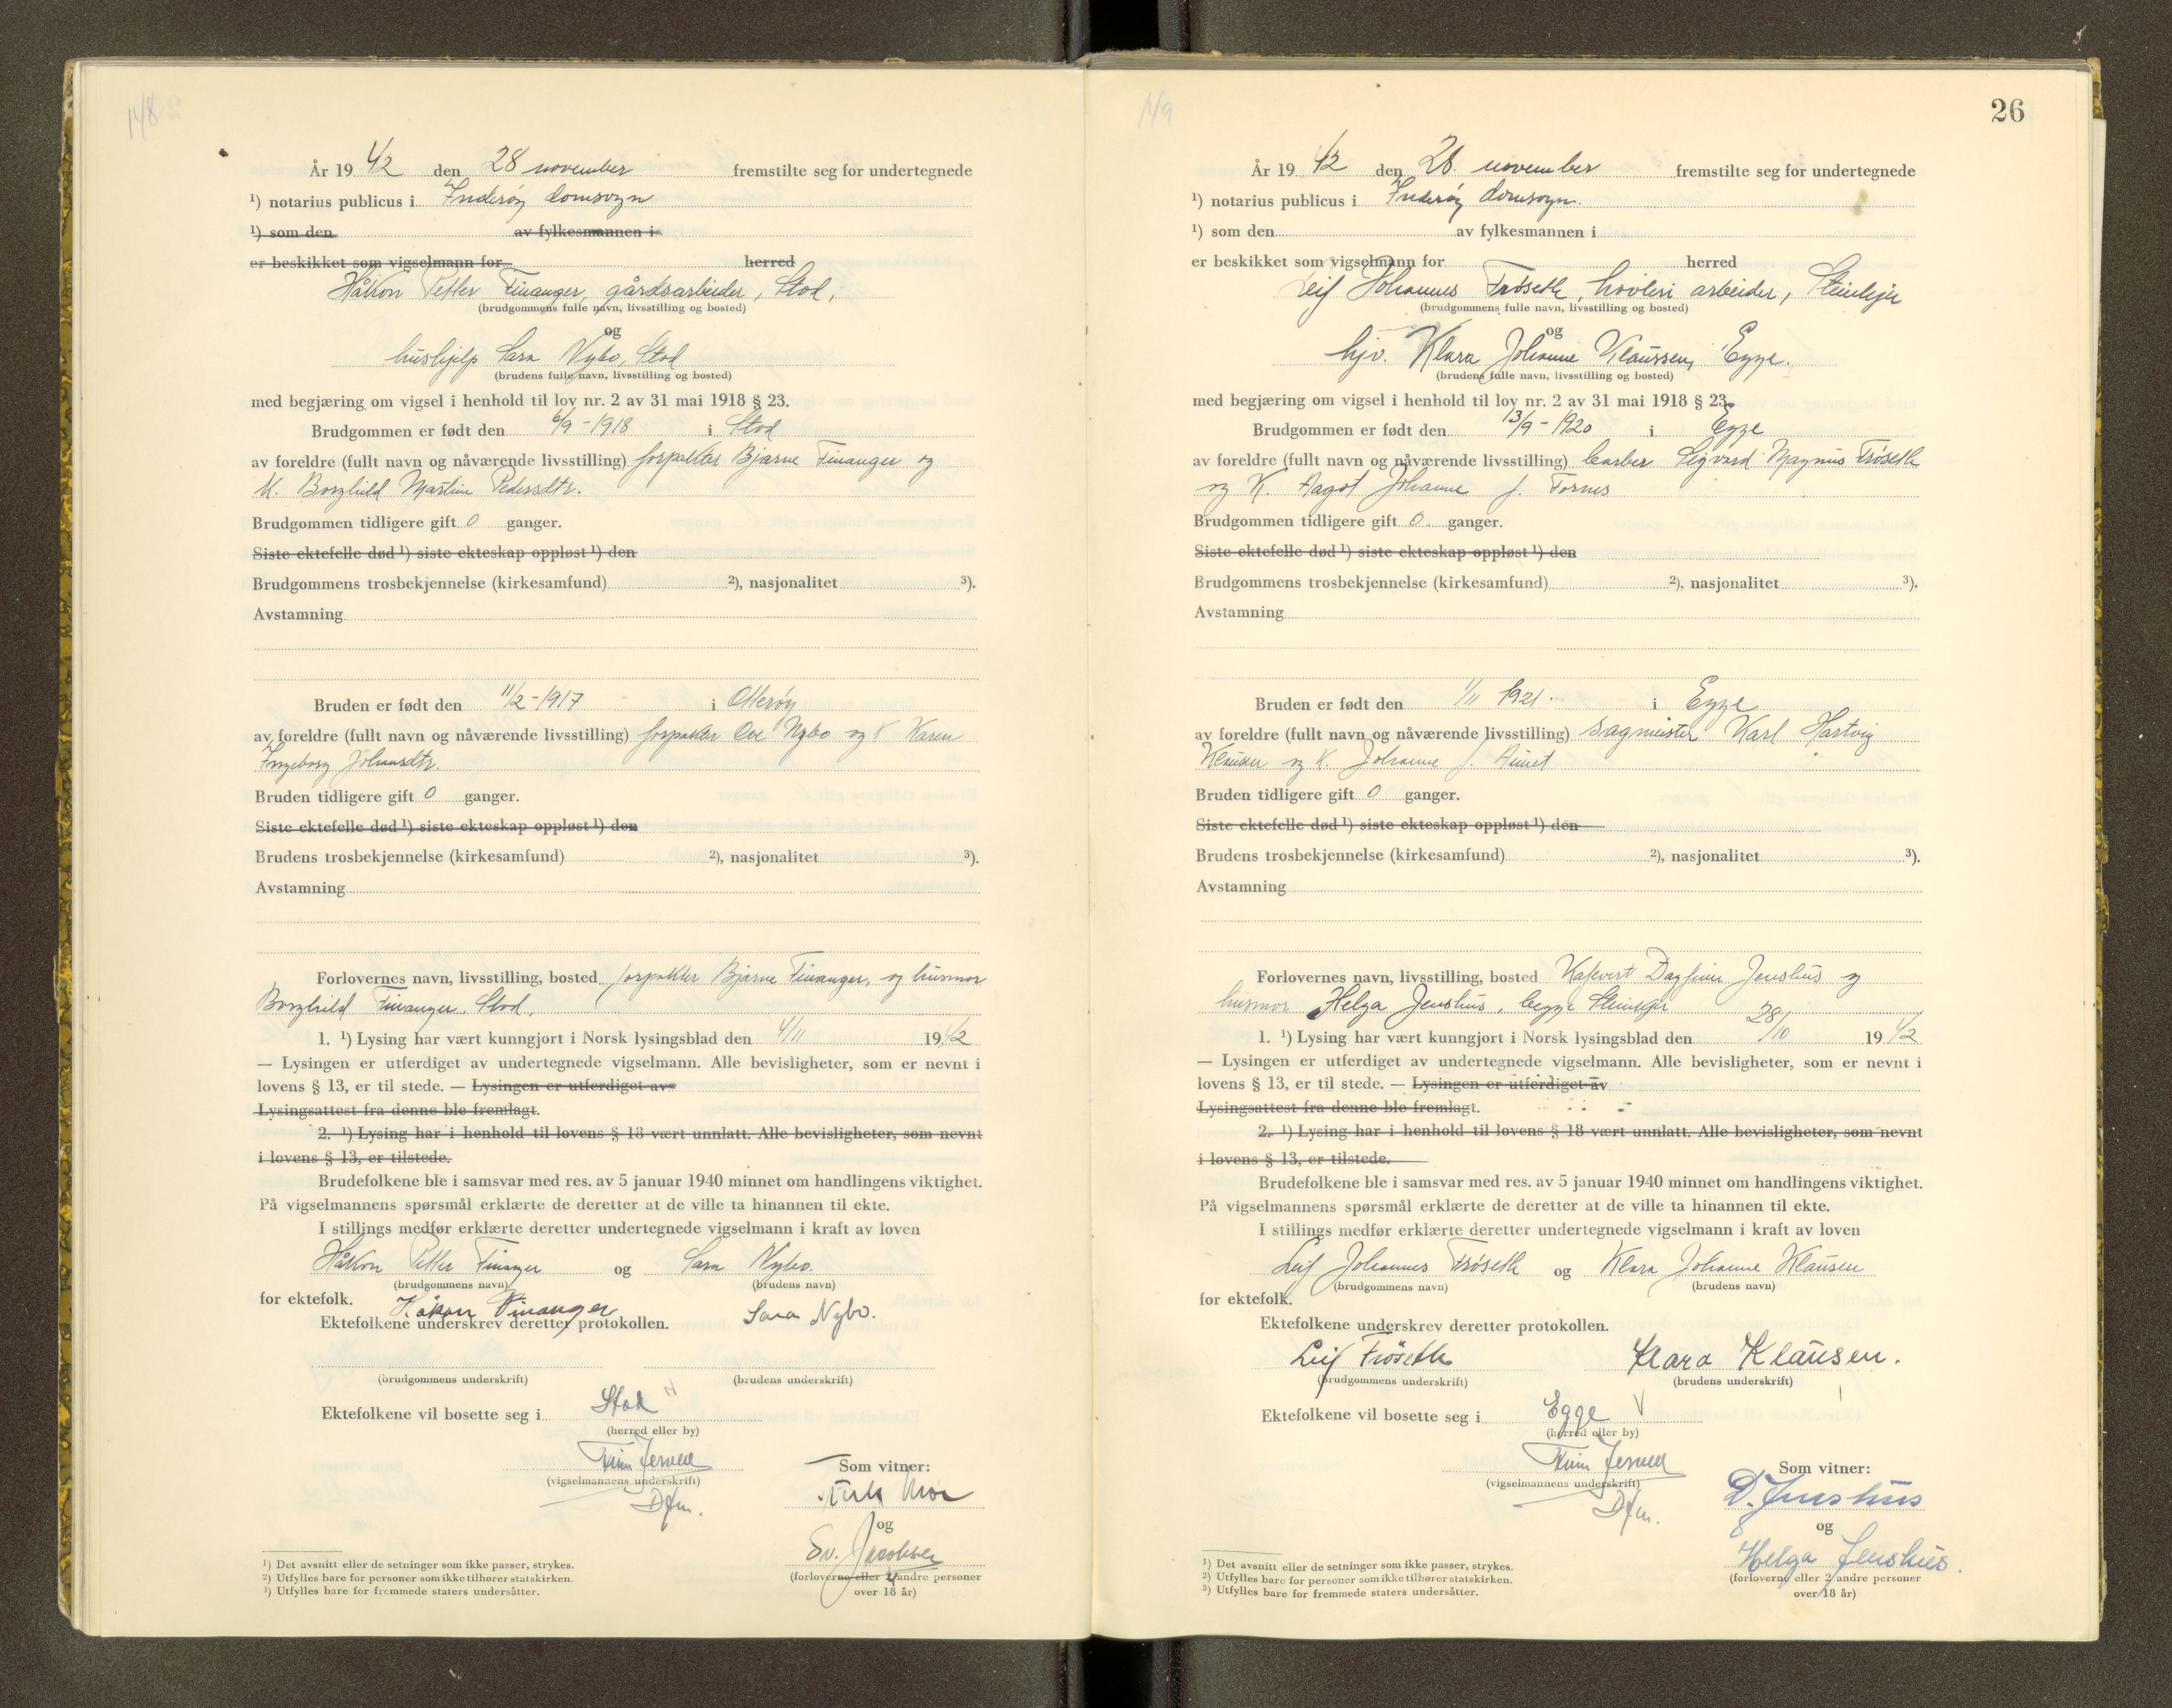 148
År 19 42 den 28 november fremstilte seg for undertegnede
¹) notarius publicus i Inderøy domsogn
¹) som den av fylkesmannen i
er beskikket som vigselmann for herred
Håkon Petter Finanger, gårdsarbeider, Stod,
(brudgommens fulle navn, livsstilling og bosted)
og
hushjelp Sara Nybo, Stod
(brudens fulle navn, livsstilling og bosted)
med begjæring om vigsel i henhold til lov nr. 2 av 31 mai 1918 § 23.
Brudgommen er født den 6/9 - 1918 i Stod
av foreldre (fullt navn og nåværende livsstilling) forpakter Bjarne Finanger og
K. Borghild Martine Pedersdtr.
Brudgommen tidligere gift 0 ganger.
Siste ektefelle død ¹) siste ekteskap oppløst ¹) den
Brudgommens trosbekjennelse (kirkesamfund) ²), nasjonalitet ³).
Avstamning
Bruden er født den 11/2 - 1917 i Otterøy
av foreldre (fullt navn og nåværende livsstilling) forpakter Ove Nybo og K Karen
Ingeborg Johansdtr.
Bruden tidligere gift 0 ganger.
Siste ektefelle død ¹) siste ekteskap oppløst ¹) den
Brudens trosbekjennelse (kirkesamfund) ²), nasjonalitet ³).
Avstamning
Forlovernes navn, livsstilling, bosted forpakter Bjarne Finanger, og husmor
Borghild Finanger, Stod.
1. ¹) Lysing har vært kunngjort i Norsk lysingsblad den 4/11 19 42
— Lysingen er utferdiget av undertegnede vigselmann. Alle bevisligheter, som er nevnt i
lovens § 13, er til stede. — Lysingen er utferdiget av
Lysingsattest fra denne ble fremlagt.
2. ¹) Lysing har i henhold til lovens § 18 vært unnlatt. Alle bevisligheter, som nevnt
i lovens § 13, er tilstede.
Brudefolkene ble i samsvar med res. av 5 januar 1940 minnet om handlingens viktighet.
På vigselmannens spørsmål erklærte de deretter at de ville ta hinannen til ekte.
I stillings medfør erklærte deretter undertegnede vigselmann i kraft av loven
Håkon Petter Finanger og Sara Nybo.
(brudgommens navn) (brudens navn)
for ektefolk. Håkon Finanger Sara Nybo.
Ektefolkene underskrev deretter protokollen.
(brudgommens underskrift) (brudens underskrift)
Ektefolkene vil bosette seg i Stod
(herred eller by)
Jervell
(vigselmannens underskrift)
Dfm.
Som vitner:
Moe
og
Sv. Jacobsen
(forloverne eller 2 andre personer
over 18 år)
¹) Det avsnitt eller de setninger som ikke passer, strykes.
²) Utfylles bare for personer som ikke tilhører statskirken.
³) Utfylles bare for fremmede staters undersåtter.
149
26
År 19 42 den 28. november fremstilte seg for undertegnede
¹) notarius publicus i Inderøy domsogn.
¹) som den av fylkesmannen i
er beskikket som vigselmann for herred
Leif Johannes Frøseth, høvleriarbeider, Steinkjer
(brudgommens fulle navn, livsstilling og bosted)
og
hjv. Klara Johanne Klaussen, Egge.
(brudens fulle navn, livsstilling og bosted)
med begjæring om vigsel i henhold til lov nr. 2 av 31 mai 1918 § 23.
Brudgommen er født den 13/9 - 1920 i Egge
av foreldre (fullt navn og nåværende livsstilling) barber Sigvard Magnus Frøseth
og K. Aagot Johanne f. Fornes
Brudgommen tidligere gift 0. ganger.
Siste ektefelle død ¹) siste ekteskap oppløst ¹) den
Brudgommens trosbekjennelse (kirkesamfund) ²), nasjonalitet ³).
Avstamning
Bruden er født den 1/11 1921. i Egge
av foreldre (fullt navn og nåværende livsstilling) sagmester Karl Hartvig
Klausen og K. Johanne f. Aunet
Bruden tidligere gift 0 ganger.
Siste ektefelle død ¹) siste ekteskap oppløst ¹) den
Brudens trosbekjennelse (kirkesamfund) ²), nasjonalitet ³).
Avstamning
Forlovernes navn, livsstilling, bosted Kafevert Dagfinn Jenshus og
husmor Helga Jenshus, begge Steinkjer
1. ¹) Lysing har vært kunngjort i Norsk lysingsblad den 28/10 19 42
— Lysingen er utferdiget av undertegnede vigselmann. Alle bevisligheter, som er nevnt i
lovens § 13, er til stede. — Lysingen er utferdiget av
Lysingsattest fra denne ble fremlagt.
2. ¹) Lysing har i henhold til lovens § 18 vært unnlatt. Alle bevisligheter, som nevnt
i lovens § 13, er tilstede.
Brudefolkene ble i samsvar med res. av 5 januar 1940 minnet om handlingens viktighet.
På vigselmannens spørsmål erklærte de deretter at de ville ta hinannen til ekte.
I stillings medfør erklærte deretter undertegnede vigselmann i kraft av loven
Leif Johannes Frøseth og Klara Johanne Klausen
(brudgommens navn) (brudens navn)
for ektefolk.
Ektefolkene underskrev deretter protokollen.
Leif Frøseth Klara Klausen.
(brudgommens underskrift) (brudens underskrift)
Ektefolkene vil bosette seg i Egge
(herred eller by)
Jervell
(vigselmannens underskrift)
Dfm.
Som vitner:
D. Jenshus
og
Helga Jenshus.
(forloverne eller 2 andre personer
over 18 år)
¹) Det avsnitt eller de setninger som ikke passer, strykes.
²) Utfylles bare for personer som ikke tilhører statskirken.
³) Utfylles bare for fremmede staters undersåtter.